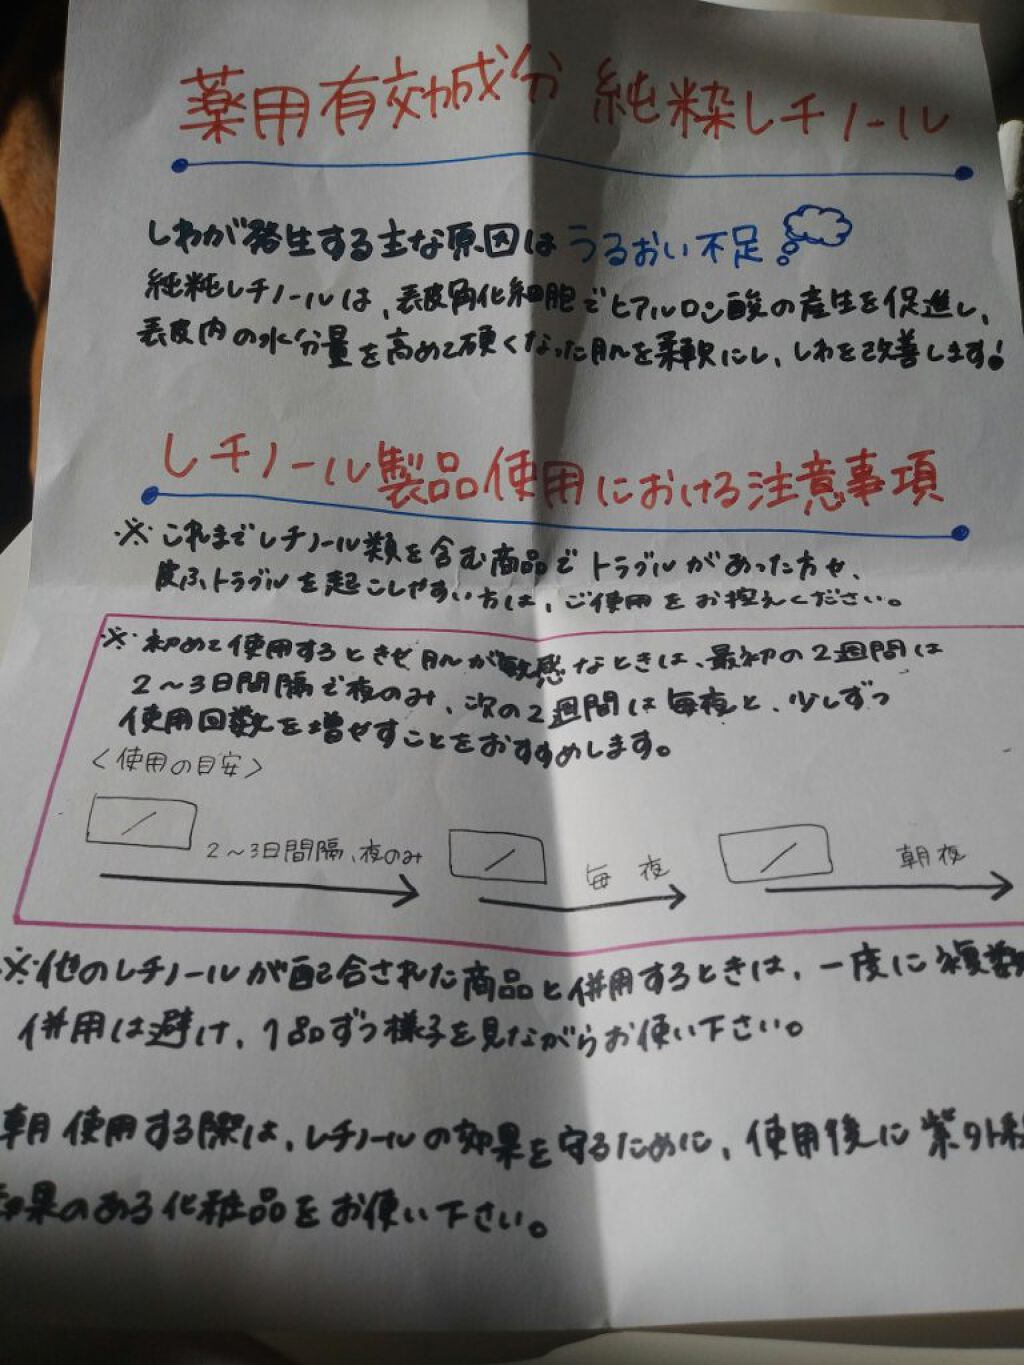 薬用有効成分 純粋レチノール
しわが発生する主な原因はうるおい不足
純粋レチノールは、表皮角化細胞でヒアルロン酸の産生を促進し、
表皮内の水分量を高めて硬くなった肌を柔軟にし、しわを改善します!
レチノール製品使用における注意事項
※これまでレチノール類を含む商品でトラブルがあった方や、
皮ふトラブルを起こしやすい方は、ご使用をお控えください。
※初めて使用するときや肌が敏感なときは、最初の2週間は
2〜3日間隔で夜のみ、次の2週間は毎夜と、少しずつ
使用回数を増やすことをおすすめします。
<使用の目安>
/ 2〜3日間隔、夜のみ / 毎夜 / 朝夜
※他のレチノールが配合された商品と併用するときは、一度に複数
併用は避け、1品ずつ様子を見ながらお使い下さい。
朝使用する際は、レチノールの効果を守るために、使用後に紫外線
効果のある化粧品をお使い下さい。